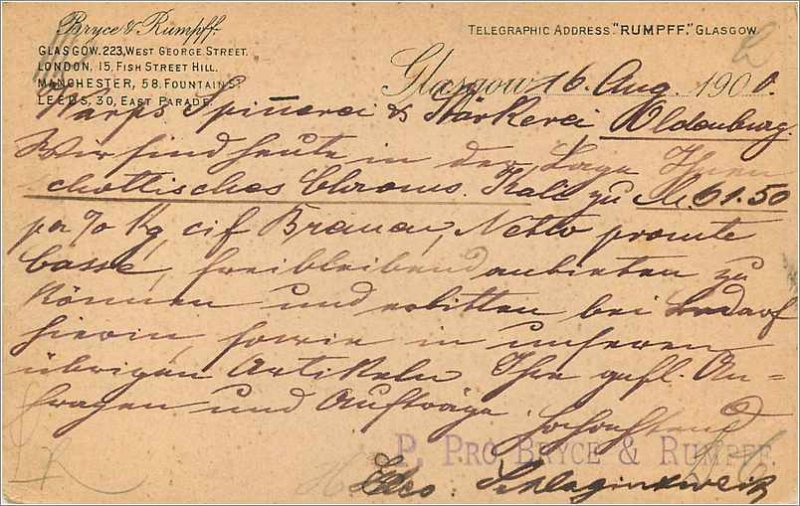 Bryce & Rumpff.
GLASGOW. 223, WEST GEORGE STREET.
LONDON, 15, FISH STREET HILL.
MANCHESTER, 58, FOUNTAIN S!
LEEDS, 30, EAST PARADE.
TELEGRAPHIC ADDRESS "RUMPFF." GLASGOW.
Glasgow 16. Aug. 190
Warps Spinnerei & Stärkerei Oldenburg.
Wir sind heute in der Lage Ihnen
schottisches Chroms. Kali zu M. 61.50
pr % Kg cif Bremen, Netto promte
Casse, freibleibend anbieten zu
können und erbitten bei Bedarf
hierin, sowie in unseren
übrigen Artikeln Ihre gefl. An=
fragen und Aufträge.
Hochachtend
P. PRO BRYCE & RUMPFF.